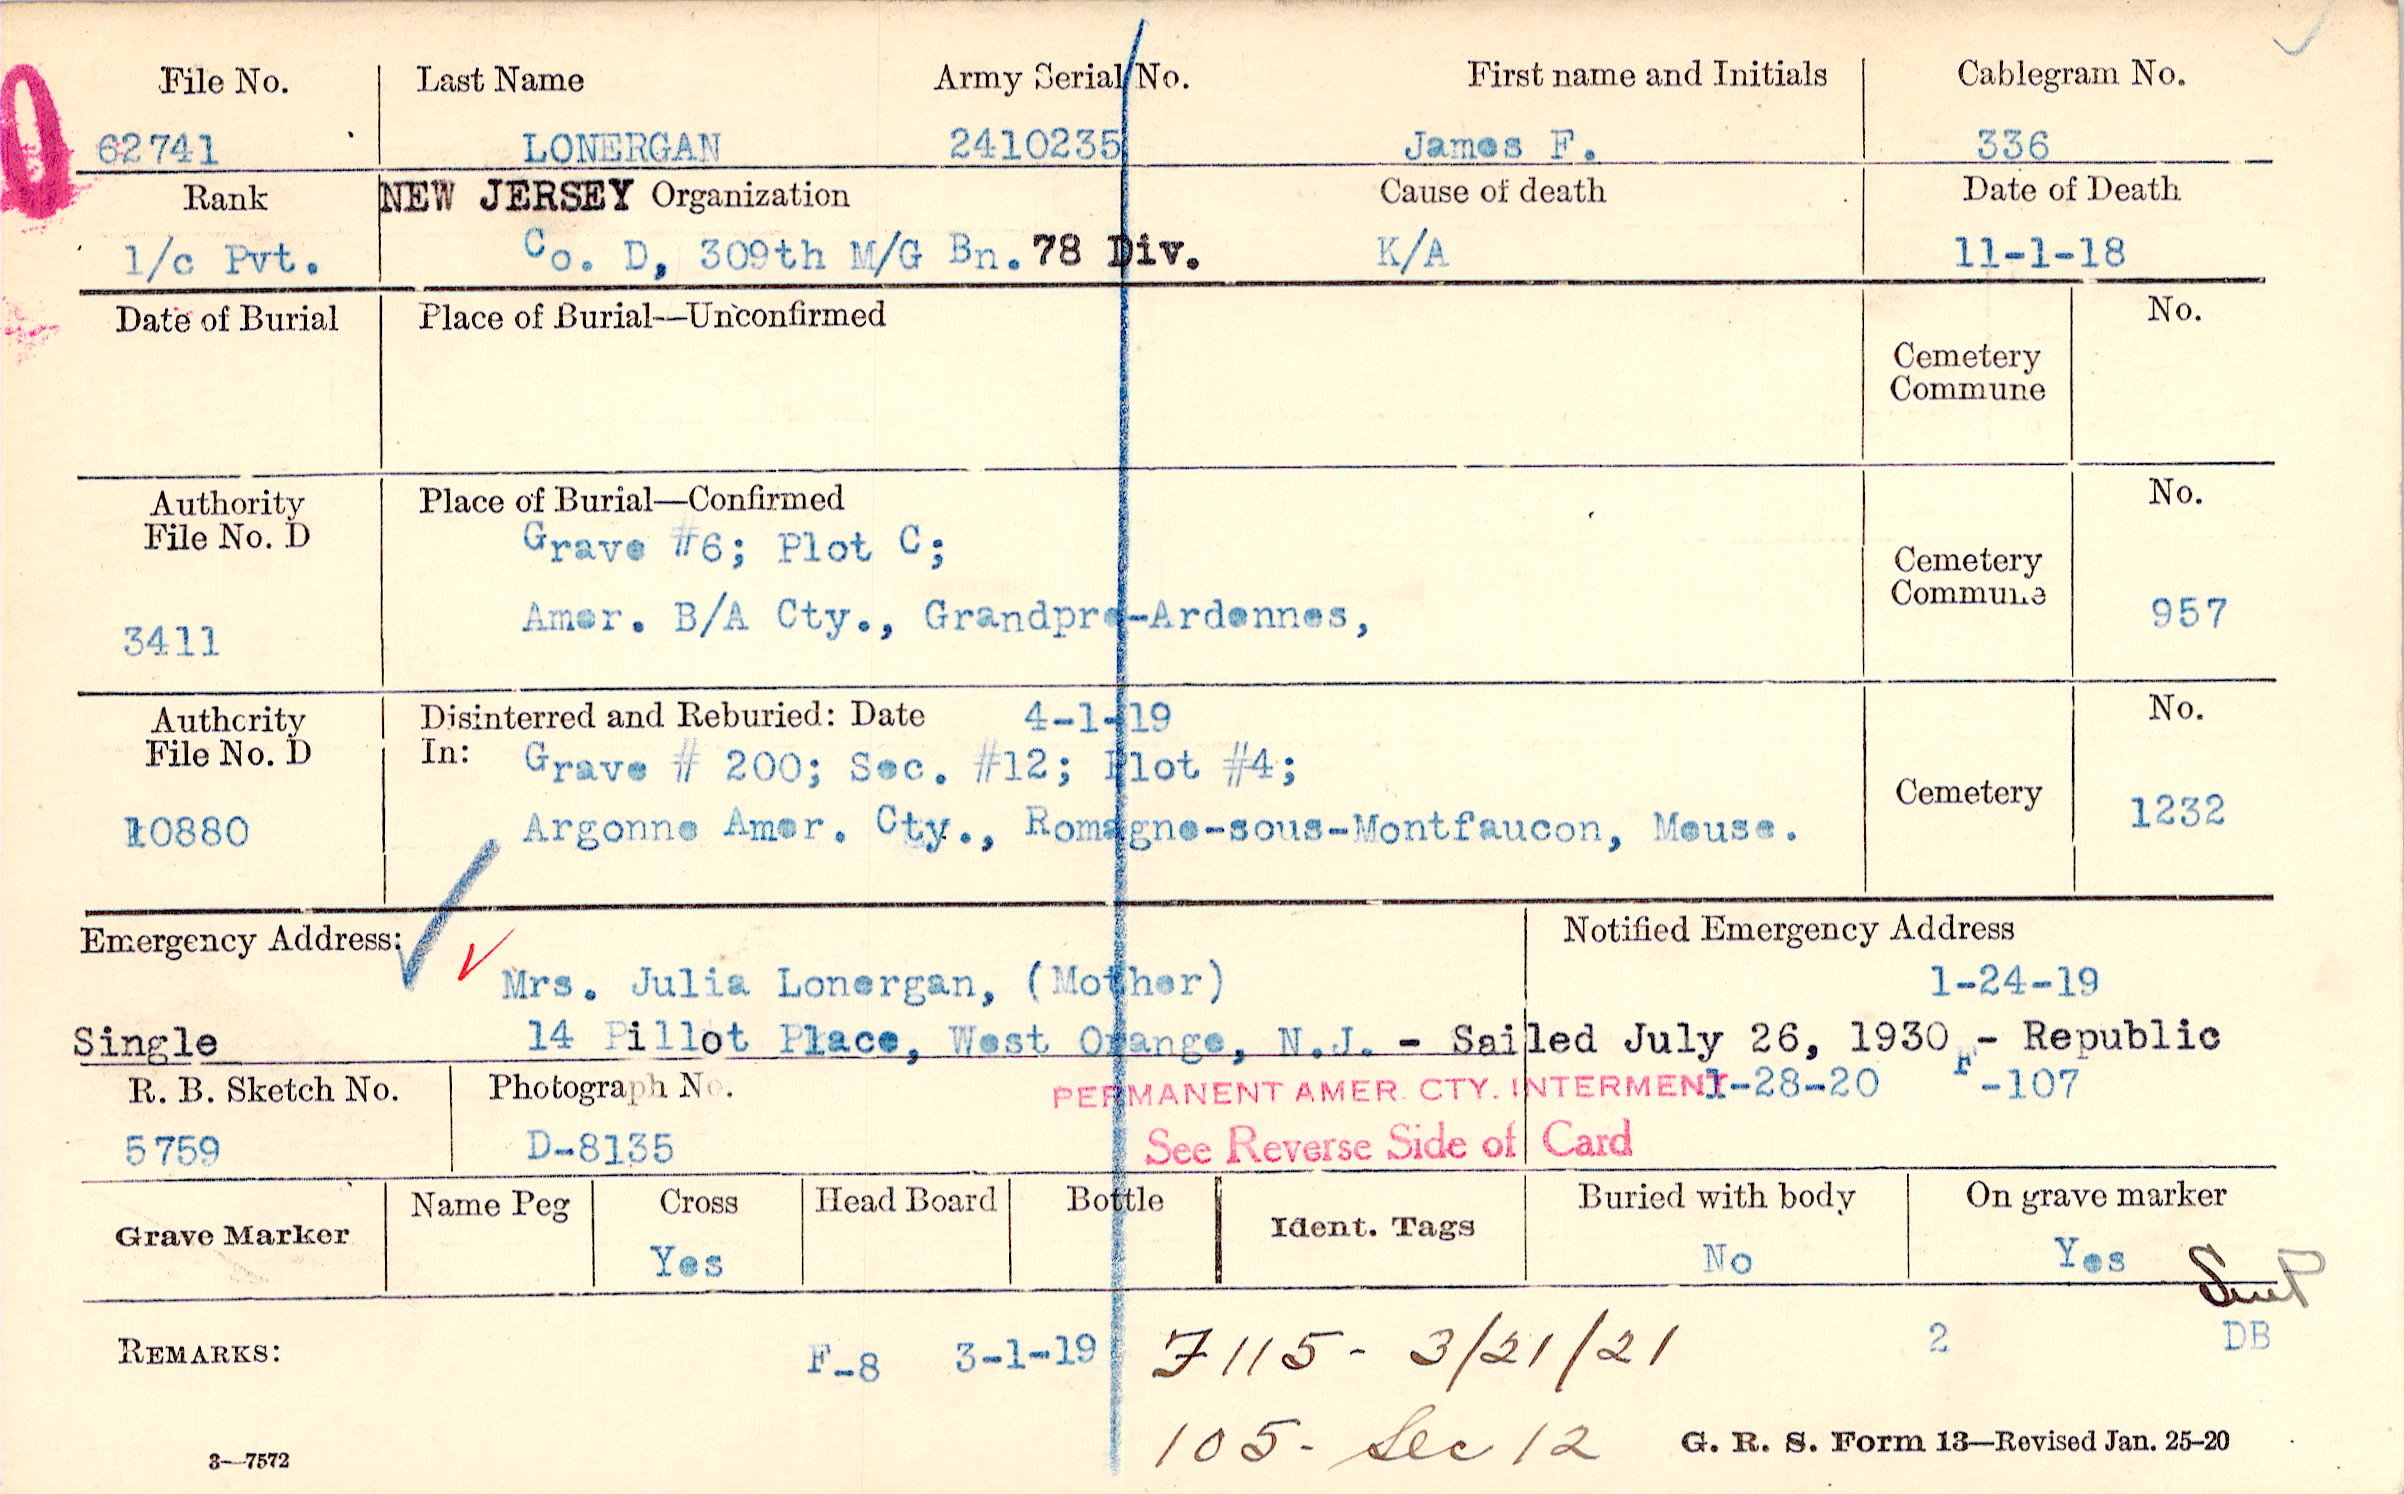 File No. Last Name Army Serial No. First name and Initials Cablegram No.
62741 LONERGAN 2410235 James F. 336
Rank NEW JERSEY Organization Cause of death Date of Death
1/c Pvt. Co. D, 309th M/G Bn. 78 Div. K/A 11-1-18
Date of Burial Place of Burial—Unconfirmed No.
Cemetery
Commune
Authority Place of Burial—Confirmed No.
File No. D Grave #6; Plot C;
Cemetery
Commune
3411 Amer. B/A Cty., Grandpre-Ardennes, 957
Authority Disinterred and Reburied: Date 4-1-19 No.
File No. D In: Grave # 200; Sec. #12; Plot #4;
Cemetery
10880 Argonne Amer. Cty., Romagne-sous-Montfaucon, Meuse. 1232
Emergency Address: Notified Emergency Address
Mrs. Julia Lonergan, (Mother) 1-24-19
Single 14 Pillot Place, West Orange, N.J. - Sailed July 26, 1930 - Republic
R. B. Sketch No. Photograph No. PERMANENT AMER. CTY. INTERMENT 1-28-20 F-107
5759 D-8135 See Reverse Side of Card
Grave Marker Name Peg Cross Head Board Bottle Ident. Tags Buried with body On grave marker
Yes No Yes
REMARKS: F-8 3-1-19 7115- 3/21/21 2 DB
105- Sec 12
3—7572 G. R. S. Form 13—Revised Jan. 25-20